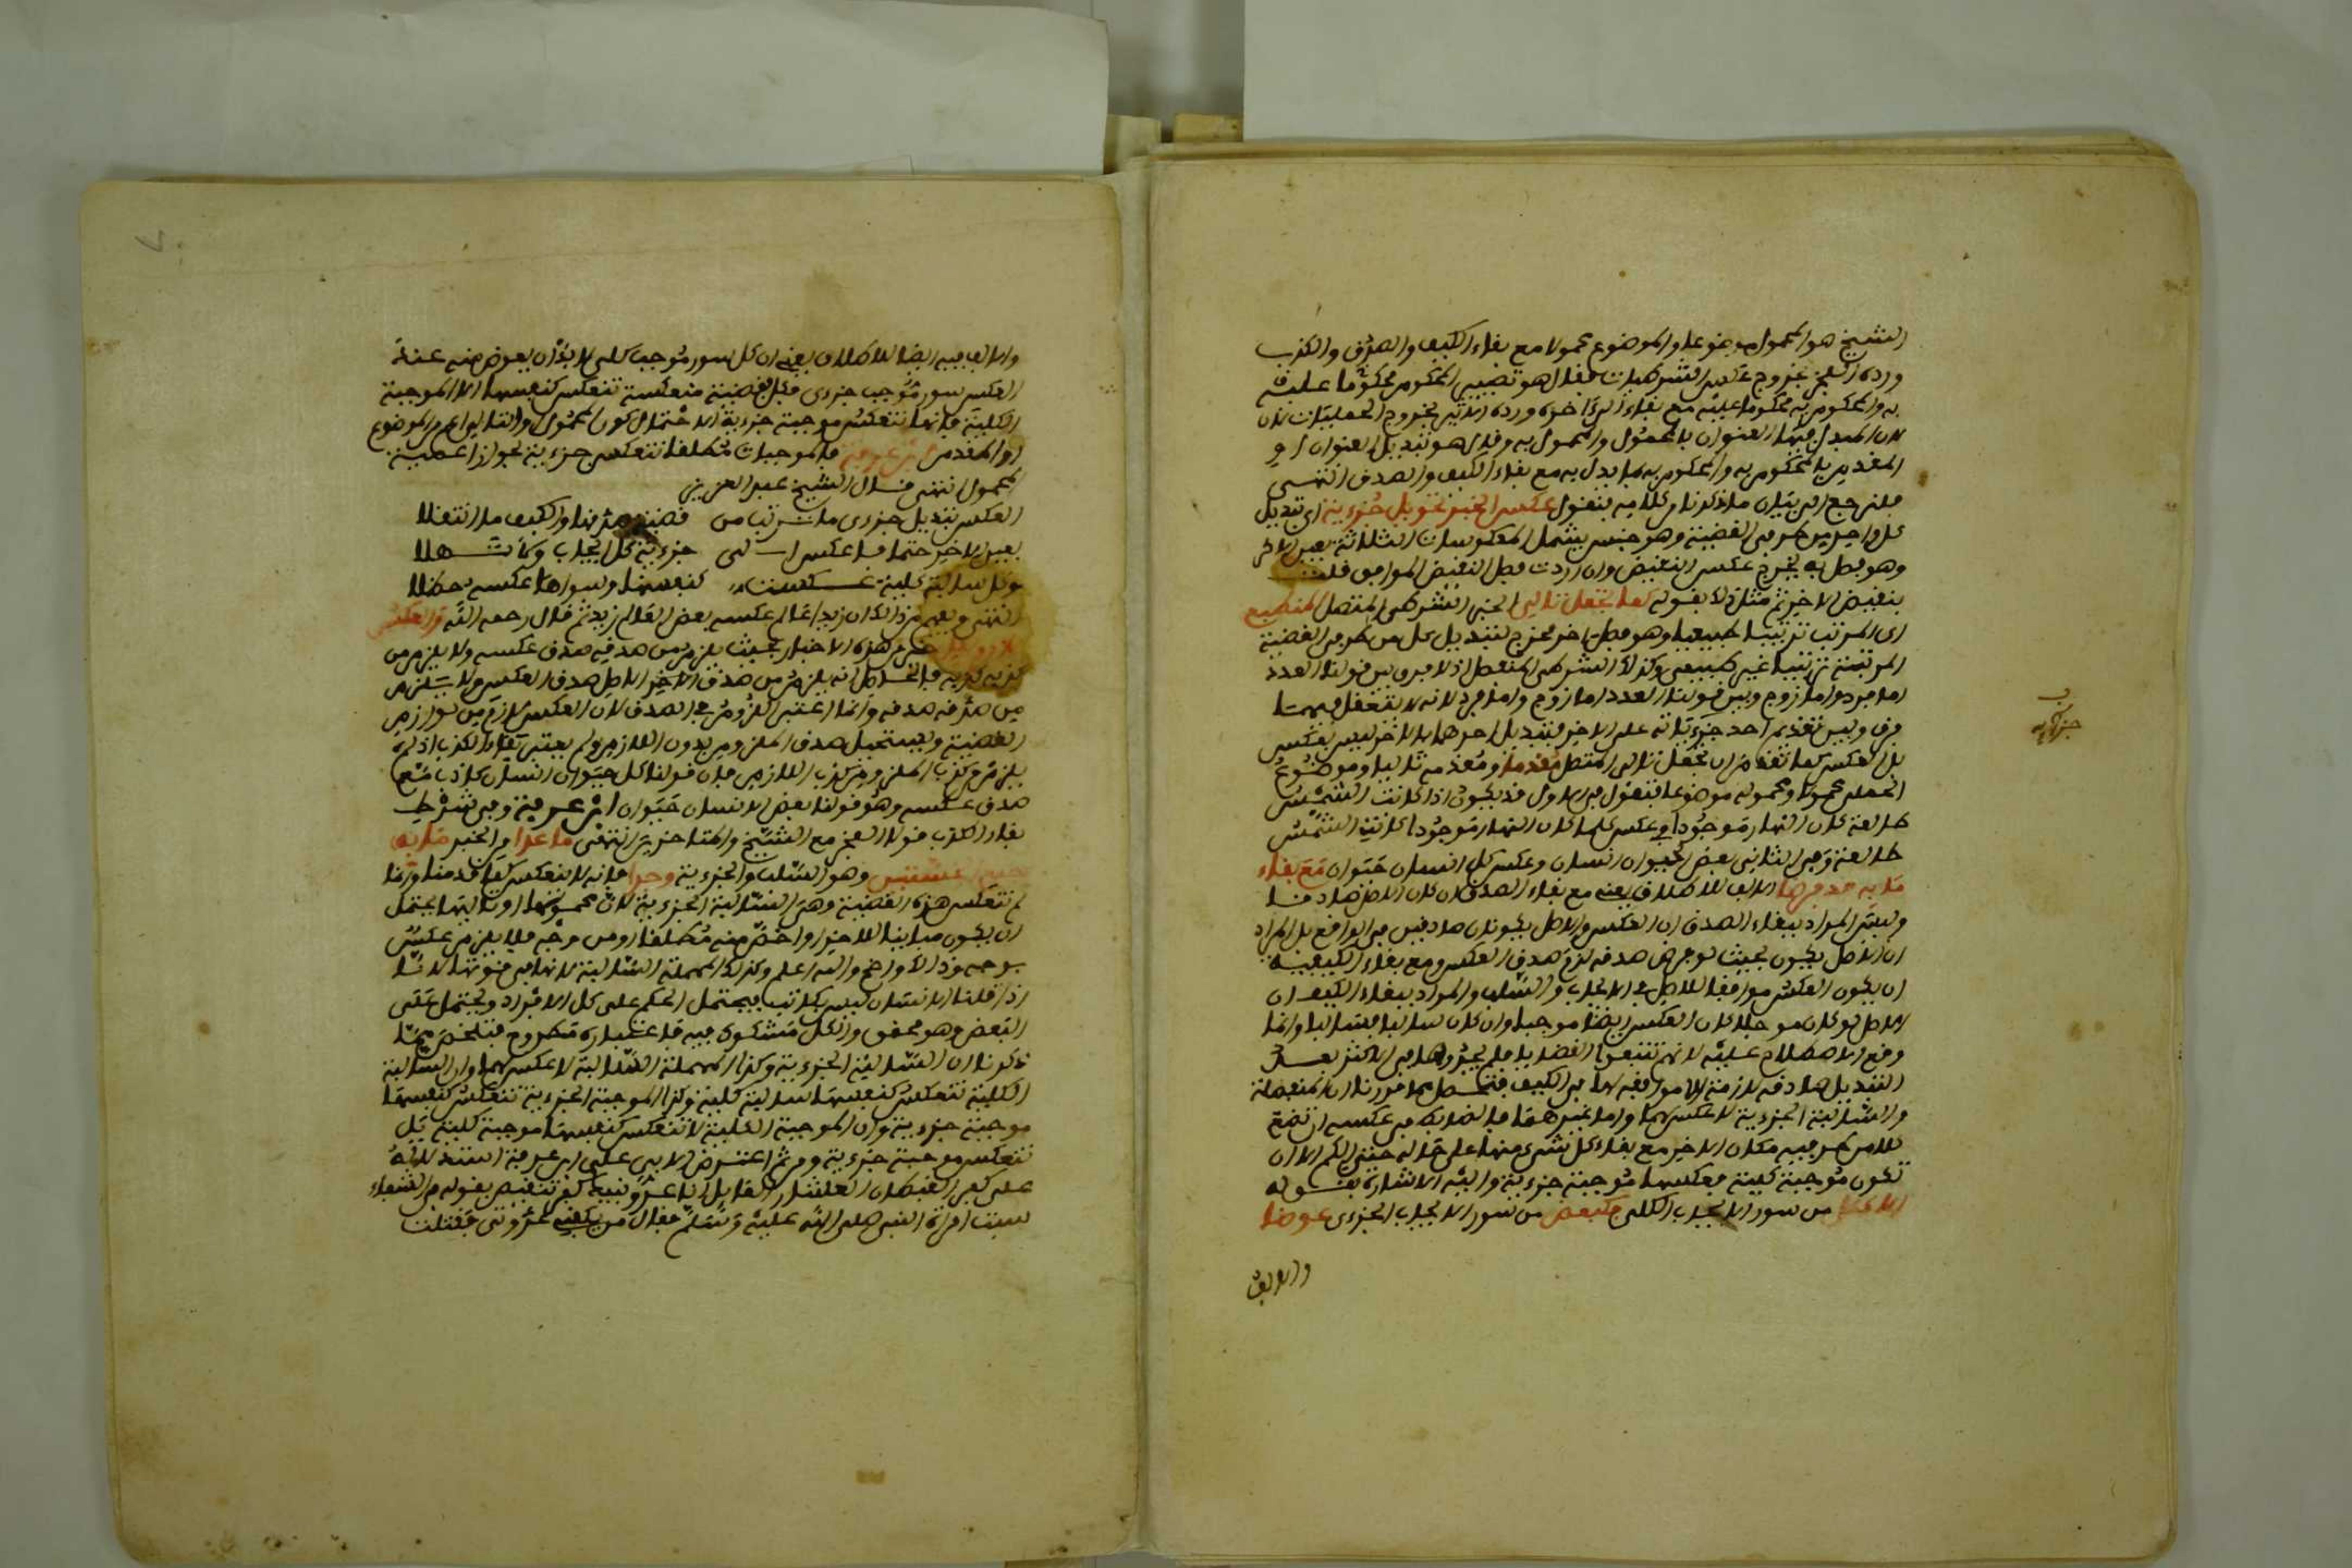 الشيخ هو المحمول موضوعا والموضوع محمولا مع بقاء الكيف والصدق والكذب
ورده السيخ بخروج عكس الشرطيات فقال هو تصيير المحكوم محكوما عليه
به والمحكوم به محكوما عليه مع بقاء الى اخره ورده الاثير بخروج الحمليات لان
لان المبدل فيها العنوان بالمحمول والمحمول به وقيل هو تبديل العنوان او
المقدم بالمحكوم به والمحكوم به بما بدل به مع بقاء الكيف والصدق انتهى
فلنرجع الى بيان ما ذكرنا وكلامه فنقول عكس الخبر تحويل جزءيه اى تبديل
كل واحد من طرفى القضية وهو جنس يشمل المعكوسات الثلاثة بعين الاخر
وهو فصل به يخرج عكس النقيض وان اردت فصل النقيض الموافق قلت
بنقيض الاخر ثم مثل ذلك بقوله كما تجعل تالى الخبر الشرطى المتصل المنطبع
اى المرتب ترتيبا طبيعيا وهو فصل اخر مخرج لتبديل كل من طرفى القضية
المرتبة ترتيبا غير طبيعى وكذلك الشرطى المنفصل اذ لا فرق بين قولنا العدد
اما فرد واما زوج وبين قولنا العدد اما زوج واما فرد لانه لا يتعقل فيهما
فرق وبين تقديم احد جزءيه على الاخر فتبديل احدهما بالاخر ليس بعكس
بل العكس كما تقدم ان تجعل تالى المتصل مقدما ومقدمه تاليا وموضوع
الحملى محمولا ومحموله موضوعا فتقول فى الاول قد يكون اذا كانت الشمس
طالعة كان النهار موجودا فى عكس كلما كان النهار موجودا كانت الشمس
طالعة وفى الثانى بعض الحيوان انسان وعكس كل انسان حيوان مع بقاء
ما به صدقها الالف للاطلاق يعنى مع بقاء الصدق ان كان الاصل صادقا
وليس المراد ببقاء الصدق ان العكس والاصل يكونان صادقين فى الواقع بل المراد
ان الاصل يكون بحيث لو فرض صدقه لزم صدق العكس ومع بقاء الكيفية
ان يكون العكس موافقا للاصل فى الايجاب والسلب والمراد ببقاء الكيف ان
الاصل لو كان موجبا كان العكس ايضا موجبا وان كان سالبا فسالبا وانما
وقع الاصطلاح عليه لانهم تتبعوا القضايا فلم يجدوها فى الاكثر بعد
التبديل صادقة لازمة الا موافقة لها فى الكيف فتحصل مما قررنا ان المنفصلة
والسالبة الجزءية لا عكس لهما واما غيرهما فالضابط فى عكسه ان تضع
كلا من طرفيه مكان الاخر مع بقاء كل شىء منها على حاله حتى الكم الا ان
تكون موجبة كلية فعكسها موجبة جزءية واليه الاشارة بقوله
من سور الايجاب الكلى فبعض من سور الايجاب الجزءى عوضا
والالف
جزءيه
والالف فيه ايضا للاطلاق يعنى ان كل سور موجب كلى لا بد ان يعوض منه عند
العكس سور موجب جزءى فكل قضية منعكسة تنعكس كنفسها الا الموجبة
الكلية فانها تنعكس موجبة جزءية لاحتمال كون المحمول والتالى اعم من الموضوع
او المقدم ابن عرفة فالموجبات مطلقا تنعكس جزءية لجواز اعمية
المحمول انتهى قال الشيخ عبد العزيز
العكس تبديل جزءى ما ترتب من قضية صدقها والكيف ما انتقلا
بعين الاخر حتما فاعكس الى جزءية كل ايجاب وكن سهلا
وكل سالبة كلية عكست كنفسها وسواها عكسه حظلا
انتهى وبعضهم زاد الا ان زيدا عالم عكسه بعض العالم زيد ثم قال رحمه الله والعكس
لازم هذه الاخبار بحيث يلزم من صدقه صدق عكسه ولا يلزم من
كذبه كذبه فالحاصل انه يلزم من صدق الاصل صدق العكس ولا يلزم من
من صدقه صدقه وانما اعتبر اللزوم فى الصدق لان العكس لازم من لوازم
القضية ويستحيل صدق الملزوم بدون اللازم ولم يعتبر بقاء الكذب اذ لم
يلزم من كذب الملزوم كذب اللازم فان قولنا كل حيوان انسان كاذب مع
صدق عكسه وهو قولنا بعض الانسان حيوان ابن عرفة وفى شرط
بقاء الكذب قولا الفخر مع الشيخ والمتاخرين انتهى ما عدا الخبر ما به
جمع الخستين وهو السلب والجزءية وجدا فانه لا ينعكس كما قدمنا وانما
لم تنعكس هذه القضية وهى السالبة الجزءية لان محمولها او تاليها يحتمل
ان يكون مباينا للاخر او اخص منه مطلقا او من وجه فلا يلزم عكس
بوجه وذلك واضح والله اعلم وكذلك المهملة السالبة لانها فى قوتها لانا
اذا قلنا الانسان ليس بكاتب فيحتمل الحكم على كل الافراد ويحتمل على
البعض وهو محقق والكل مشكوك فيه فاعتباره مطروح فتلخص مما
ذكرنا ان السالبة الجزءية وكذا المهملة السالبة لا عكس لهما وان السالبة
الكلية تنعكس كنفسها سالبة كلية وكذا الموجبة الجزءية تنعكس كنفسها
موجبة جزءية وان الموجبة الكلية لا تنعكس كنفسها موجبة كلية بل
تنعكس موجبة جزءية ومن ثم اعترض الابى على ابن عرفة استدلاله
على كفر القائل
سبت امراة النبى صلى الله عليه وسلم فقال من يكفينى عدوتى فقتلت